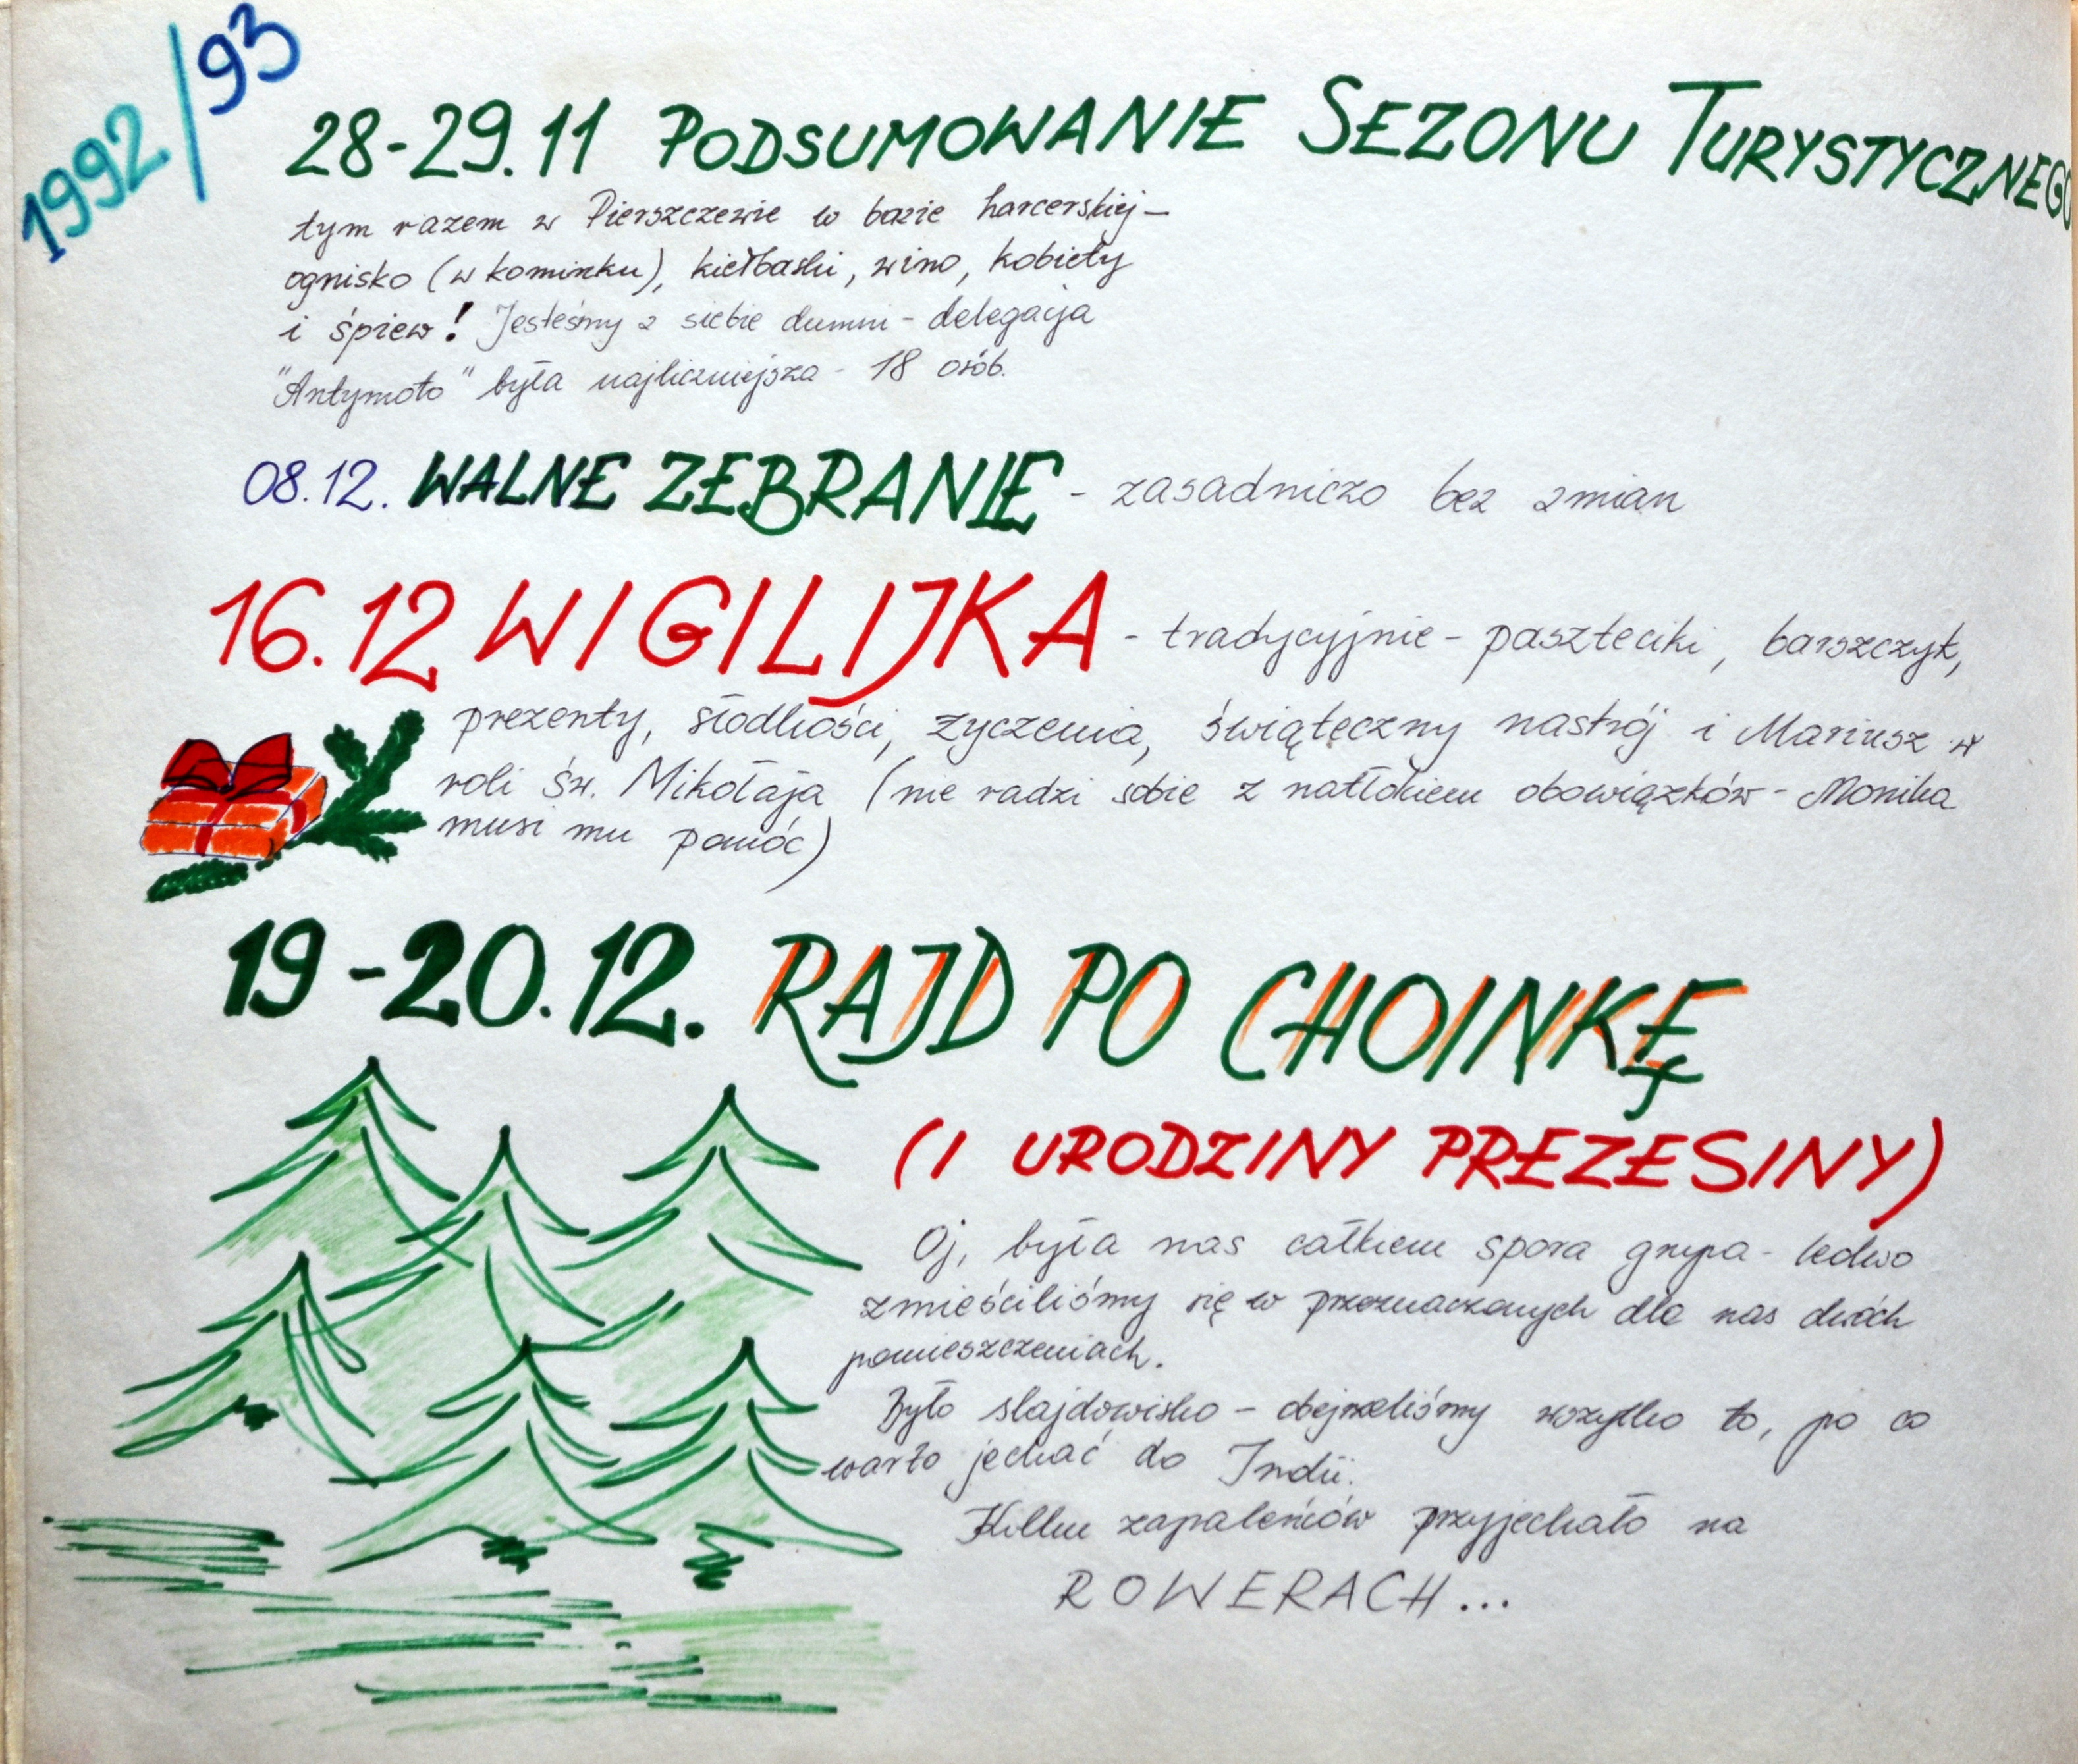 1992/93
28-29.11 PODSUMOWANIE SEZONU TURYSTYCZNEGO
tym razem w Pierszczewie w bazie harcerskiej-
ognisko (w kominku), kiełbaski, wino, kobiety
i śpiew! Jesteśmy z siebie dumni - delegacja
"Antymoto" była najliczniejsza - 18 osób.
08.12. WALNE ZEBRANIE - zasadniczo bez zmian
16.12 WIGILIJKA - tradycyjnie - paszteciki, barszczyk,
prezenty, słodkości, życzenia, świąteczny nastrój i Mariusz w
roli św. Mikołaja (nie radzi sobie z natłokiem obowiązków - Monika
musi mu pomóc)
19-20.12. RAJD PO CHOINKĘ
(I URODZINY PREZESINY)
Oj, była nas całkiem spora grupa - ledwo
zmieściliśmy się w przeznaczonych dla nas dwóch
pomieszczeniach.
Było slajdowisko - obejrzeliśmy wszystko to, po co
warto jechać do Indii.
Kilku zapaleńców przyjechało na
ROWERACH...